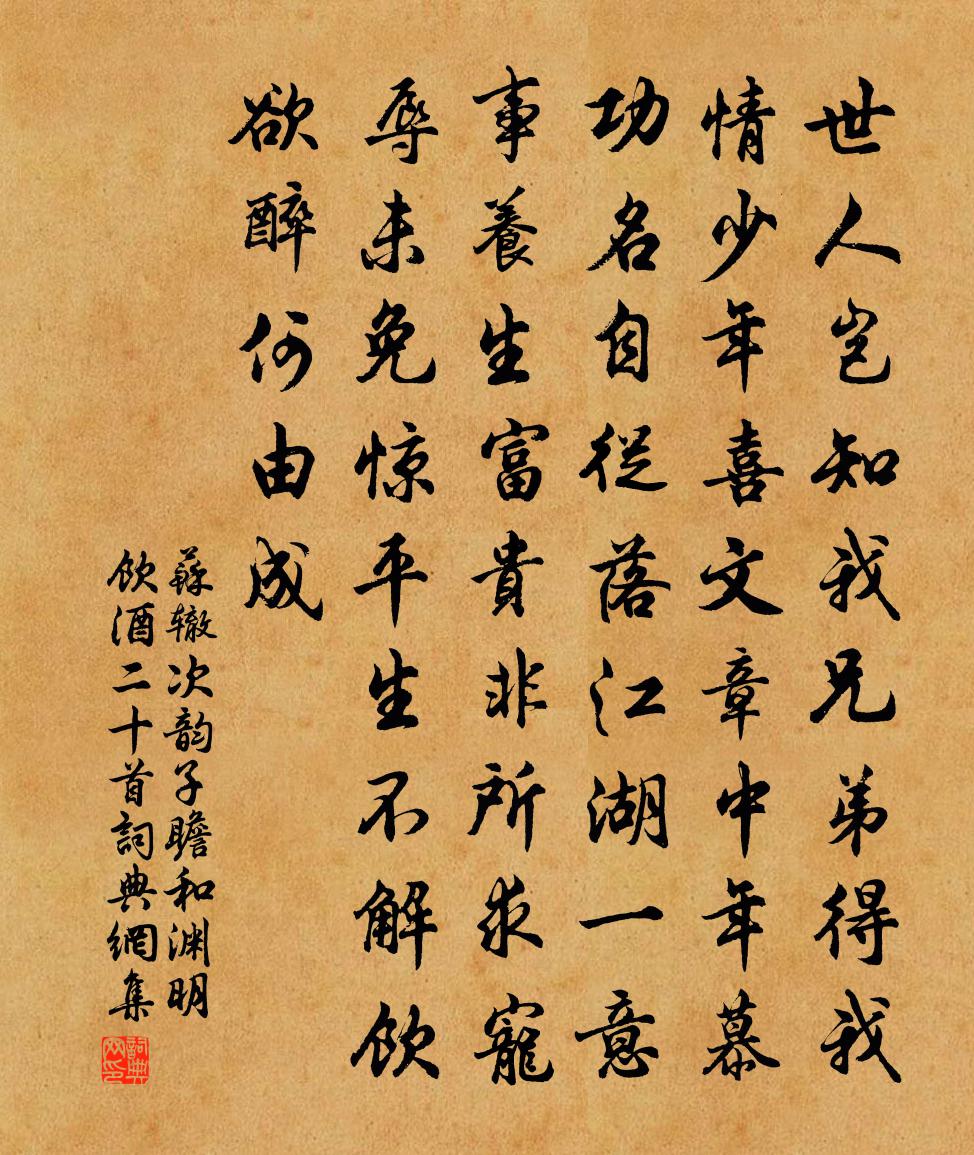 世人岂知我兄弟得我
情少年喜文章中年慕
功名自從落江湖一意
事養生富貴非所求寵
辱未免惊平生不解飲
欲醉何由成
蘇辙次韵子瞻和渊明
飲酒二十首詞典網集
詞典网印